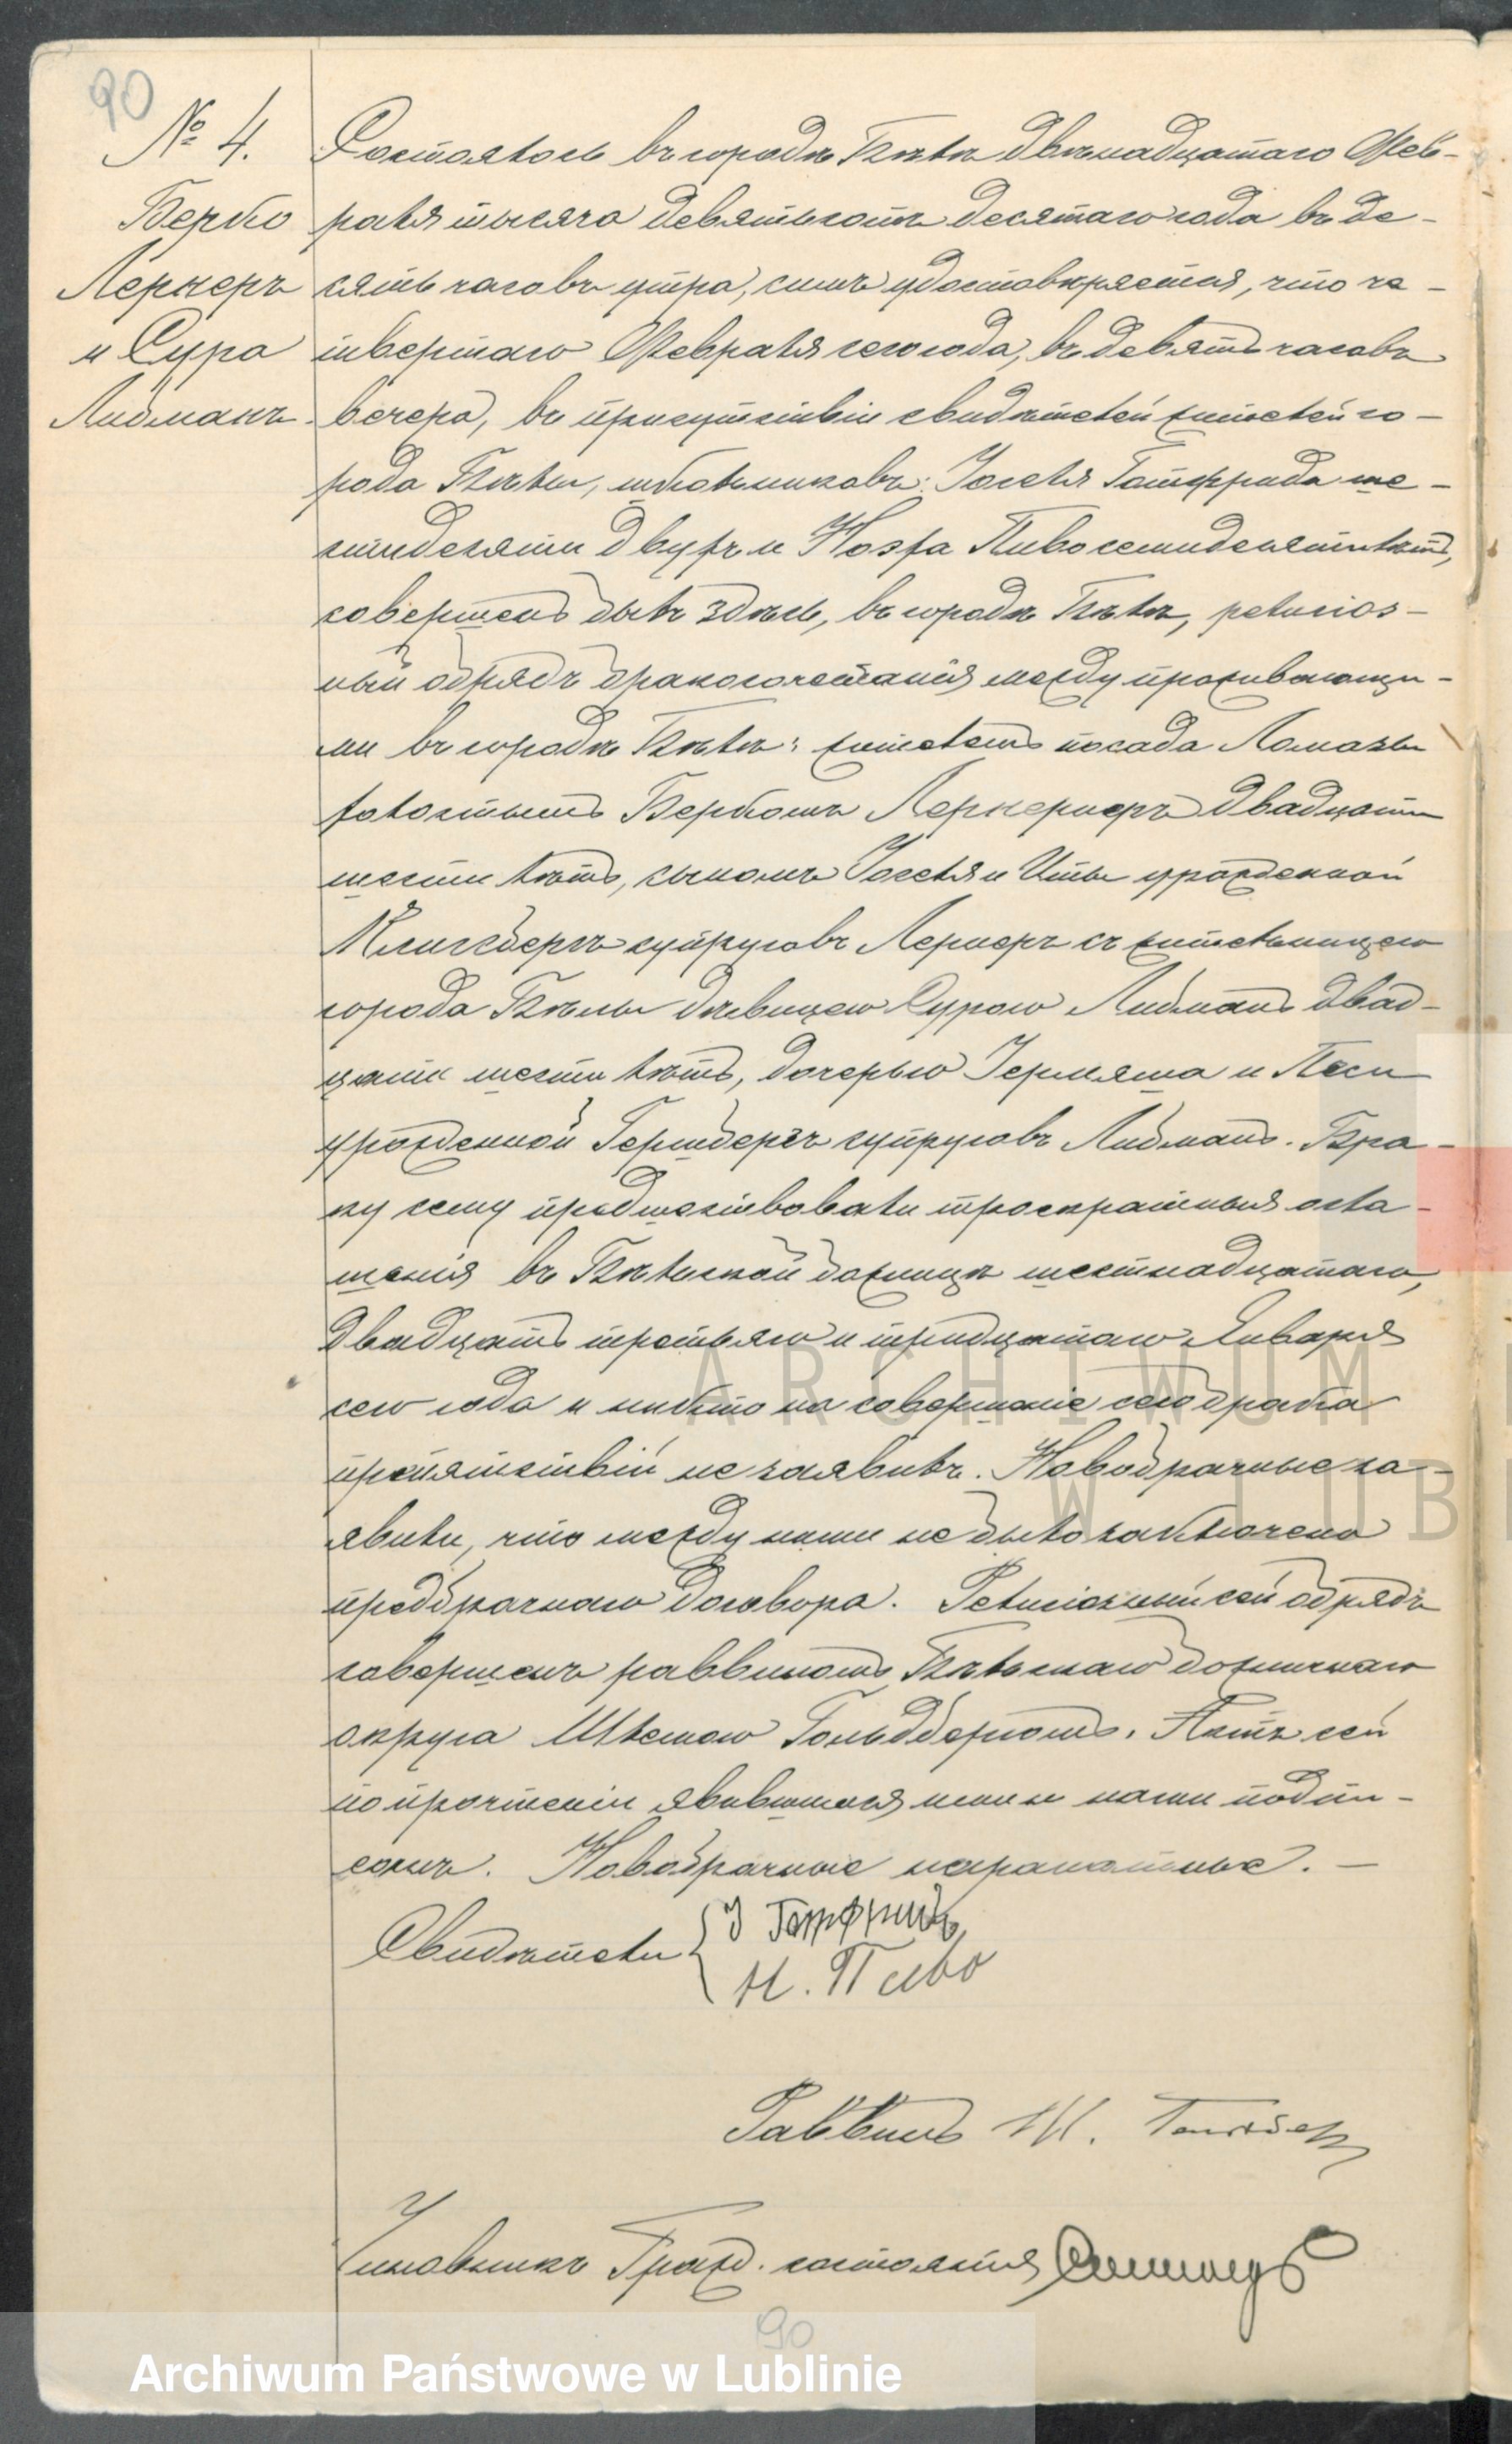 90
№ 4.
Берко
Лернеръ
и Сура
Либманъ.
Состоялось въ городѣ Бѣлѣ двѣнадцатаго Фев-
раля тысяча девятьсотъ десятаго года въ де-
сять часовъ утра, симъ удостовѣряется, что че-
твертаго Февраля сего года, въ девять часовъ
вечера, въ присутствіи свидѣтелей жителей го-
рода Бѣлы, школьниковъ: Іоселя Готфрида ше-
стидесяти двухъ и Ноэха Пиво семидесяти лѣтъ,
совершенъ былъ здѣсь, въ городѣ Бѣлѣ, религіоз-
ный обрядъ бракосочетанія между проживающи-
ми въ городѣ Бѣлѣ: жителемъ посада Ломазы
холостымъ Беркомъ Лернеромъ двадцати
шести лѣтъ, сыномъ Іоселя и Иты урожденной
Клигбергъ супруговъ Лернеръ съ жительницею
города Бѣлы дѣвицею Сурою Либманъ двад-
цати шести лѣтъ, дочерью Герляша и Песи
урожденной Гершбергъ супруговъ Либманъ. Бра-
ку сему предшествовали троекратныя огла-
шенія въ Бѣльской божницѣ шестнадцатаго,
двадцать третьяго и тридцатаго Января
сего года и никто на совершеніе сего брака
препятствій не заявилъ. Новобрачные за-
явили, что между ними не было заключено
предбрачнаго договора. Религіозный сей обрядъ
совершенъ раввиномъ Бѣльскаго божничнаго
округа Шлемою Гольдбергомъ. Актъ сей
по прочтеніи явившимся нами подпи-
санъ. Новобрачные неграмотные. —
Свидѣтели { І Готфридъ
Н. Пиво
Раввинъ Ш. Гольдбер
Чиновникъ Гражд. состоянія
90
ARCHIWUM
W LUB
Archiwum Państwowe w Lublinie